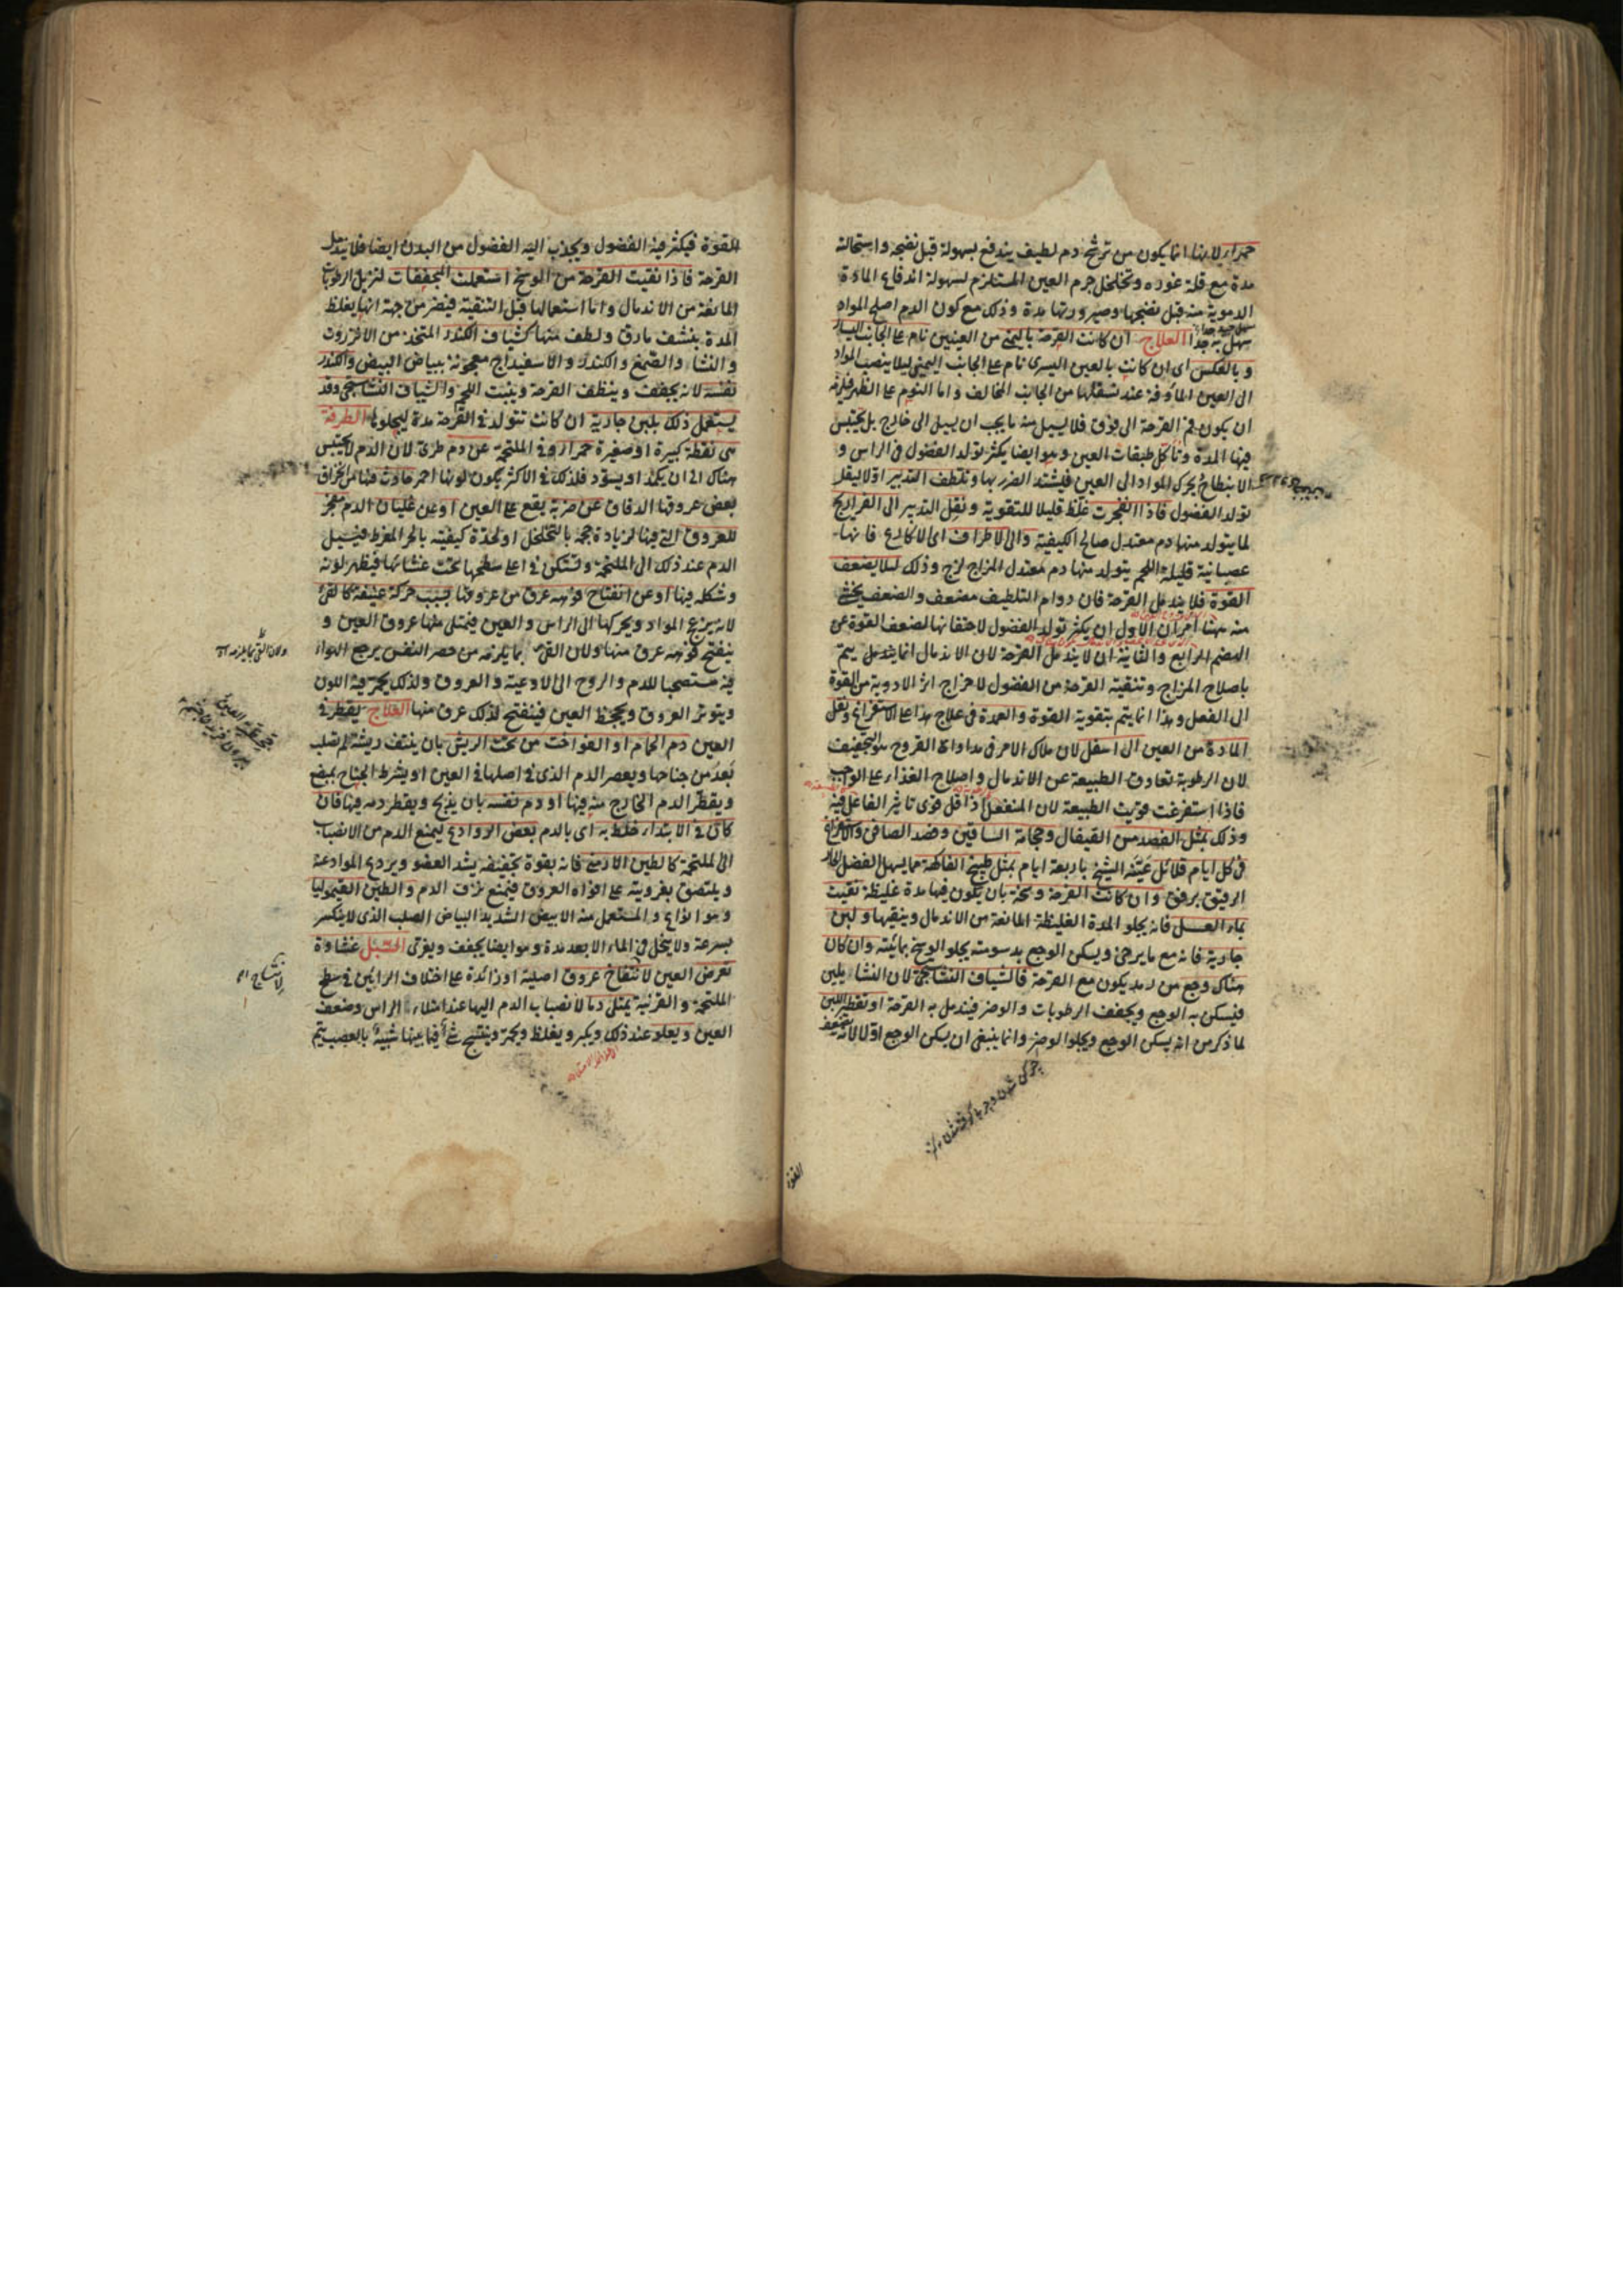 حمراء لانها انما يكون من ترشح دم لطيف يندفع بسهولة قبل نضجه واستحالته
مدة مع قلة غوره وتخلخل جرم العين المستلزم لسهولة اندفاع المادة
الدموية منه قبل نضجها وصيرورتها مدة وذلك مع كون الدم اصلح المواد
سهل به جدا العلاج ان كانت القرحة باليمنى من العينين نام على الجانب اليسار
وبالعكس اى ان كانت بالعين اليسرى نام على الجانب اليمنى ليلا ينصب المواد
الى العين الماوفة عند تسفلها من الجانب المخالف واما النوم على الظهر فلزمه
ان يكون فم القرحة الى فوق فلا يسيل منه ما يجب ان يسيل الى خارج بل يحتبس
فيها المدة وتأكل طبقات العين وهو ايضا يكثر تولد الفضول فى الراس و
الانبطاح يحرك المواد الى العين فيشتد الضرر بها وتلطف التدبير اولا ليقل
تولد الفضول فاذا انفجرت غلظ قليلا للتقوية ونقل التدبير الى الفراريج
لما يتولد منها دم معتدل صالح الكيفية والى الاطراف اى الاكارع فانها
عصبانية قليلة اللحم يتولد منها دم معتدل المزاج لزج وذلك لئلا يضعف
القوة فلا يندمل القرحة فان دوام التلطيف مضعف والضعف يخشى
منه ههنا امران الاول ان يكثر تولد الفضول لاحتقانها لضعف القوة عن
الهضم الرابع والثانية ان لا يندمل القرحة لان الاندمال انما يتم
باصلاح المزاج وتنقية القرحة من الفضول لاخراج اثر الادوية من القوة
الى الفعل وهذا انما يتم بتقوية القوة والعمدة فى علاج هذا على الاستفراغ ونقل
المادة من العين الى اسفل لان ملاك الامر فى مداواة القروح هو التجفيف
لان الرطوبة تعاوق الطبيعة عن الاندمال واصلاح الغذاء على الواجب
فاذا استفرغت قويت الطبيعة لان المنفعل اذا قل قوى تاثير الفاعل فيه
وذلك بمثل الفصد من القيفال وحجامة الساقين وفصد الصافن والاستفراغ
فى كل ايام قلائل عينه الشيخ باربعة ايام بمثل طبيخ الفاكهة مما يسهل الفضل الحار
الرقيق برفق وان كانت القرحة وسخة بان يكون فيها مدة غليظة نقيت
بماء العسل فانه يجلو المدة الغليظة المانعة من الاندمال وينقيها ولبن
جارية فانه مع ما يرخى ويسكن الوجع بدسومته يجلو الوسخ بمائيته وان كان
هناك وجع من رمد يكون مع القرحة فالشياف النشاستجى لان النشا يلين
فيسكن به الوجع ويجفف الرطوبات والوضر فيندمل به القرحة او تقطير اللبن
لما ذكر من انه يسكن الوجع ويجلو الوضر وانما ينبغى ان يسكن الوجع اولا لانه مضعف
القوة
للقوة فيكثر فيه الفضول ويجذب اليه الفضول من البدن ايضا فلا يندمل
القرحة فاذا نقيت القرحة من الوسخ استعملت المجففات لتزيل الرطوبات
المانعة من الاندمال واما استعمالها قبل التنقية فيضر من جهة انها يغلظ
المدة بنشف مارق ولطف منها كشياف الكندر المتخذ من الانزروت
والنشا والصمغ والكندر والاسفيداج معجونة ببياض البيض والكندر
نفسه لانه يجفف وينظف القرحة وينبت اللحم والشياف النشاستجى وقد
يستعمل ذلك بلبن جارية ان كانت تتولد فى القرحة مدة ليجلوها الطرفة
هى نقطة كبيرة او صغيرة حمراء فى الملتحمة عن دم طرى لان الدم لا يحتبس
هناك الى ان يكمد او يسود فلذلك فى الاكثر يكون لونها احمر حادث فيها من انخراق
بعض عروقها الدقاق عن ضربة يقع على العين او عن غليان الدم مفجر
للعروق التى فيها لزيادة حجمه بالتخلخل او لحدة كيفيته بالحر المفرط فيسيل
الدم عند ذلك الى الملتحمة ويتمكن فى اعلى سطحها تحت غشائها فيظهر لونه
وشكله فيها او عن انفتاح فوهة عرق من عروقها بسبب حركة عنيفة كالقئ
لانه يزعج المواد ويحركها الى الراس والعين فيمتلى منها عروق العين و
ينفتح فوهة عرق منها ولان القئ بما يلزمه من حصر النفس يرجع الهواء
فيه مستصحبا للدم والروح الى الاوعية والعروق ولذلك يحمر فيه اللون
ويتوتر العروق ويجحظ العين فينفتح لذلك عرق منها العلاج يقطر فى
العين دم الحمام او الفواخت من تحت الريش بان ينتف ريشة لم تصلب
بعد من جناحها ويعصر الدم الذى فى اصلها فى العين او يشرط الجناح بمبضع
ويقطر الدم الخارج منه فيها او دم نفسه بان يذبح ويقطر دمه فيها فان
كان فى الابتداء خلط به اى بالدم بعض الروادع ليمنع الدم من الانصباب
الى الملتحمة كالطين الارمنى فانه بقوة تجفيفه يشد العضو ويردع المواد عنه
ويلتصق بغرويته على افواه العروق فيمنع نزف الدم والطين القيموليا
وهو انواع والمستعمل منه الابيض الشديد البياض الصلب الذى لا ينكسر
بسرعة ولا ينحل فى الماء الا بعد مدة وهو ايضا يجفف ويغرى السبل غشاوة
تعرض العين لانتفاخ عروق اصلية او زائدة على اختلاف الرائين فى سطح
الملتحمة والقرنية يمتلى دما لانصباب الدم اليها عند امتلاء الراس وضعف
العين ويعلو عند ذلك ويكبر ويغلظ ويحمر وينتسج شئ فيما بينها شبيه بالعصب يتم
ولان القئ بما يلزمه